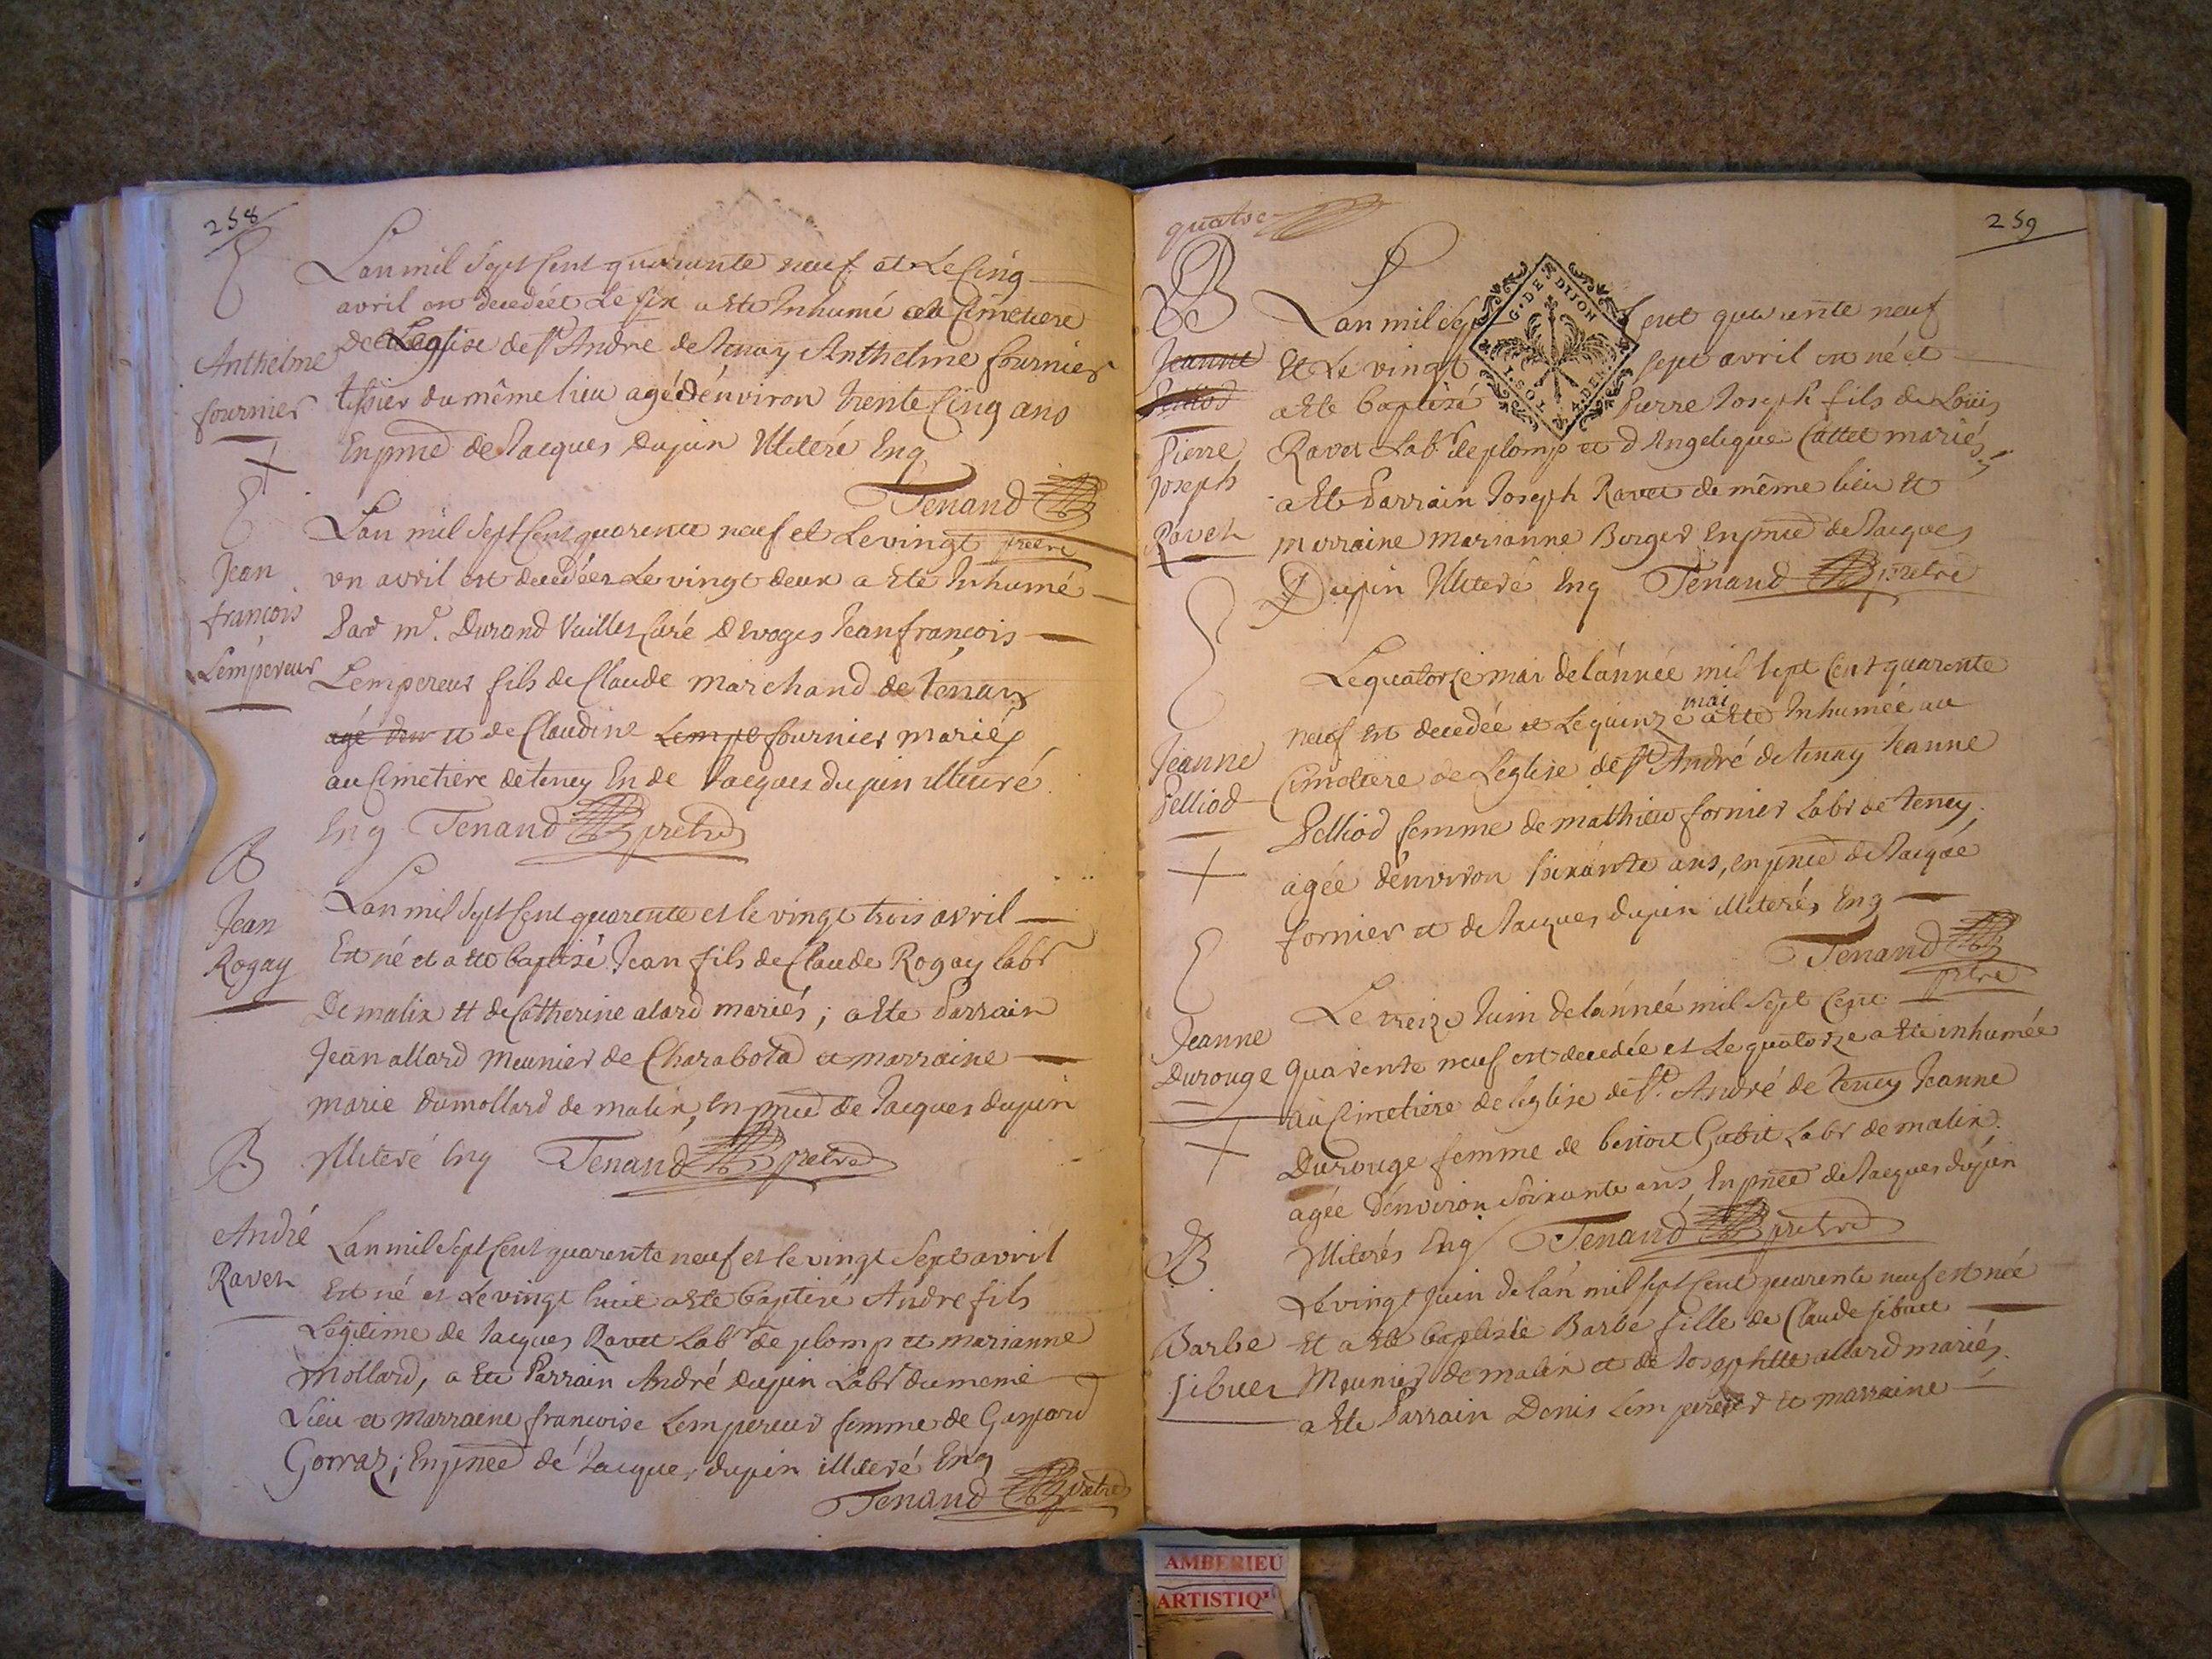 258
Lan mil Sept Cent quarante neuf et Le Cinq
avril on decedéet Le six a Ete Inhumé au Cimetiere
De L'eglise de St André de tenay Anthelme fournier
tissier du même lieu agé d'énviron trente Cinq ans
En pnce de Jacques Dupin Illiteré Enq
Tenand
prètre
Anthelme
fournier
Lan mil Sept Cent quarente neuf et Le vingt
vn avril est decedéet Le vingt deux a Ete Inhumé
Par mr. Durand Curé D'evoges Jean françois
Lempereur fils de Claude marchand de tenay
agé et de Claudine Lempe fournier mariés
au Cimetiere de teney En de Jacques dupin illiteré
Enq Tenand pretre
Jean
françois
Lempereur
B
Lan mil Sept Cent quarente et le vingt trois avril
Est né et a ete baptisé Jean fils de Claude Rogay labr
De malix et de Catherine alard mariés; a Ete Parrain
Jean allard Meunier de Charabota et marraine
marie dumollard de malix, En pnce de Jacques dupin
Illiteré Enq Tenand pretre
Jean
Rogay
B
Lan mil Sept Cent quarente neuf et le vingt Sept avril
Est né et Le vingt huit a ete baptisé André fils
Legitime de Jacques Ravet Labr de plomp et marianne
Mollard, a Ete Parrain André dupin Labr du meme
Lieu et Marraine francoise Lempereur femme de Gaspard
Gorraz; En pnce dé Jacques dupin illiteré Enq
Tenand pretre
André
Ravet
quatre
259
B
Lan mil Sept Cent quarente neuf
Et Le vingt sept avril est né et
a Ete baptisé Pierre Joseph fils de Louis
Ravet Labr de plomp et d'Angelique Cattet mariés,
a Ete Parrain Joseph Ravet de même lieu et
marraine Marianne Burger En pnce de Jacques
Dupin Illiteré Enq Tenand pretre
G. DE DIJON
Jeanne
Pelliod
Pierre
Joseph
Ravet
Le quatorze mai de l'année mil Sept Cent quarente
neuf est decedée et Le quinze mai a Ete Inhumée au
Cimetiere de L'eglise de St André de tenay Jeanne
Pelliod femme de mathieu fornier Labr de teney.
agée d'énviron soixante ans, en pnce de
fornier et de Jacques dupin illiterés Enq
Tenand
ptre
Jeanne
Pelliod
Le treize Juin de l'année mil Sept Cent
quarente neuf est decedée et Le quatorze a Ete inhumée
au Cimetiere de leglise de St. André de teney Jeanne
Durouge femme de benoit Gubit Labr de malix.
agée d'énviron Soixante ans, En pnce de Jacques dupin
Illiterés Enq Tenand pretre
Jeanne
Durouge
B
Le vingt Juin de l'an mil Sept Cent quarente neuf est née
Et a Ete baptisée Barbe fille de Claude sibuet
Meunier de malix et de Josephtte allard mariés.
a Ete Parrain Denis Lempereur et marraine
Barbe
Sibuet
AMBERIEU
ARTISTIQ